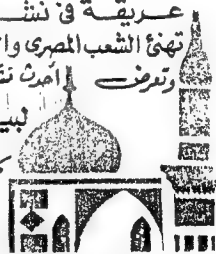 عريقة فى نشـ
تهنئ الشعب المصرى وا
وتعرض أحدث
لبيـ